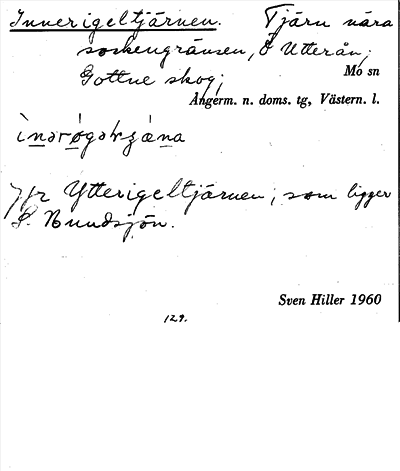 Innerigeltjärnen. Tjärn nära
sockengränsen, Ö Utterån;
Gottne skog; Mo sn
Ångerm. n. doms. tg, Västern. l.
Jfr Ytterigeltjärnen, som ligger
S. Nundsjön.
Sven Hiller 1960
129.